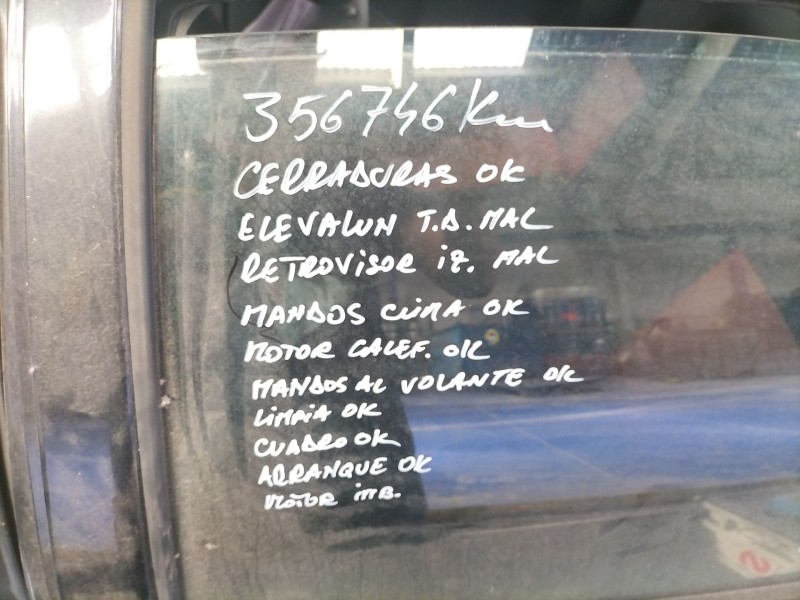 356746 Km
CERRADURAS OK
ELEVALUN T.D. MAL
RETROVISOR iz. MAL
MANDOS CLIMA OK
MOTOR CALEF. OK
MANDOS AL VOLANTE OK
LIMPIA OK
CUADRO OK
ARRANQUE OK
MOTOR